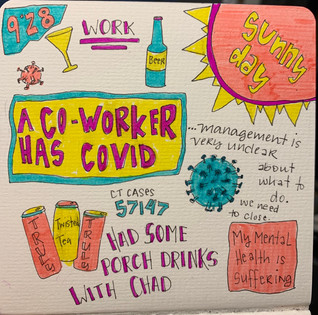 9·28
WORK
BEER
sunny
day
A CO-WORKER
HAS COVID
...management is
very unclear
about
what to
do.
we need
to close.
CT CASES
57147
TRULY
Twisted
Tea
TRULY
HAD SOME
PORCH DRINKS
WITH CHAD
My Mental
Health is
Suffering